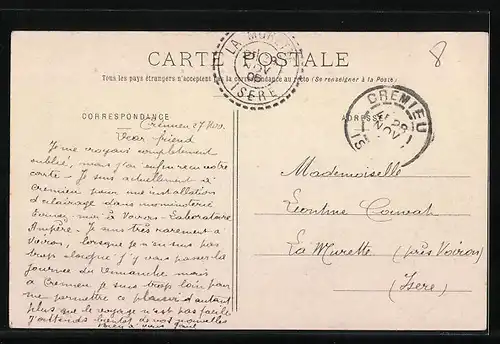 8
CARTE POSTALE
Tous les pays étrangers n'acceptent pas la correspondance au recto (Se renseigner à la Poste)
LA MURETTE
NOV
05
ISERE
CREMIEU
28
NOV
IS
CORRESPONDANCE
ADRESSE
Cremieu 27 Nov
Dear friend
Je me croyais complètement
oublié, mais j'ai enfin reçu votre
carte - Je suis actuellement à
Cremieu pour une installation
d'éclairage dans
moi à Voiron - Laboratoire
Ampère - Je suis très rarement à
Voiron, lorsque je n'en suis pas
trop éloigné j'y vais passer la
journée du dimanche mais
à Cremieu je suis trop loin pour
me permettre ce plaisir d'autant
plus que le voyage n'est pas facile
J'attends bientôt de vos nouvelles
bien à vous
Mademoiselle
Léontine
La Murette (près Voiron)
(Isère)